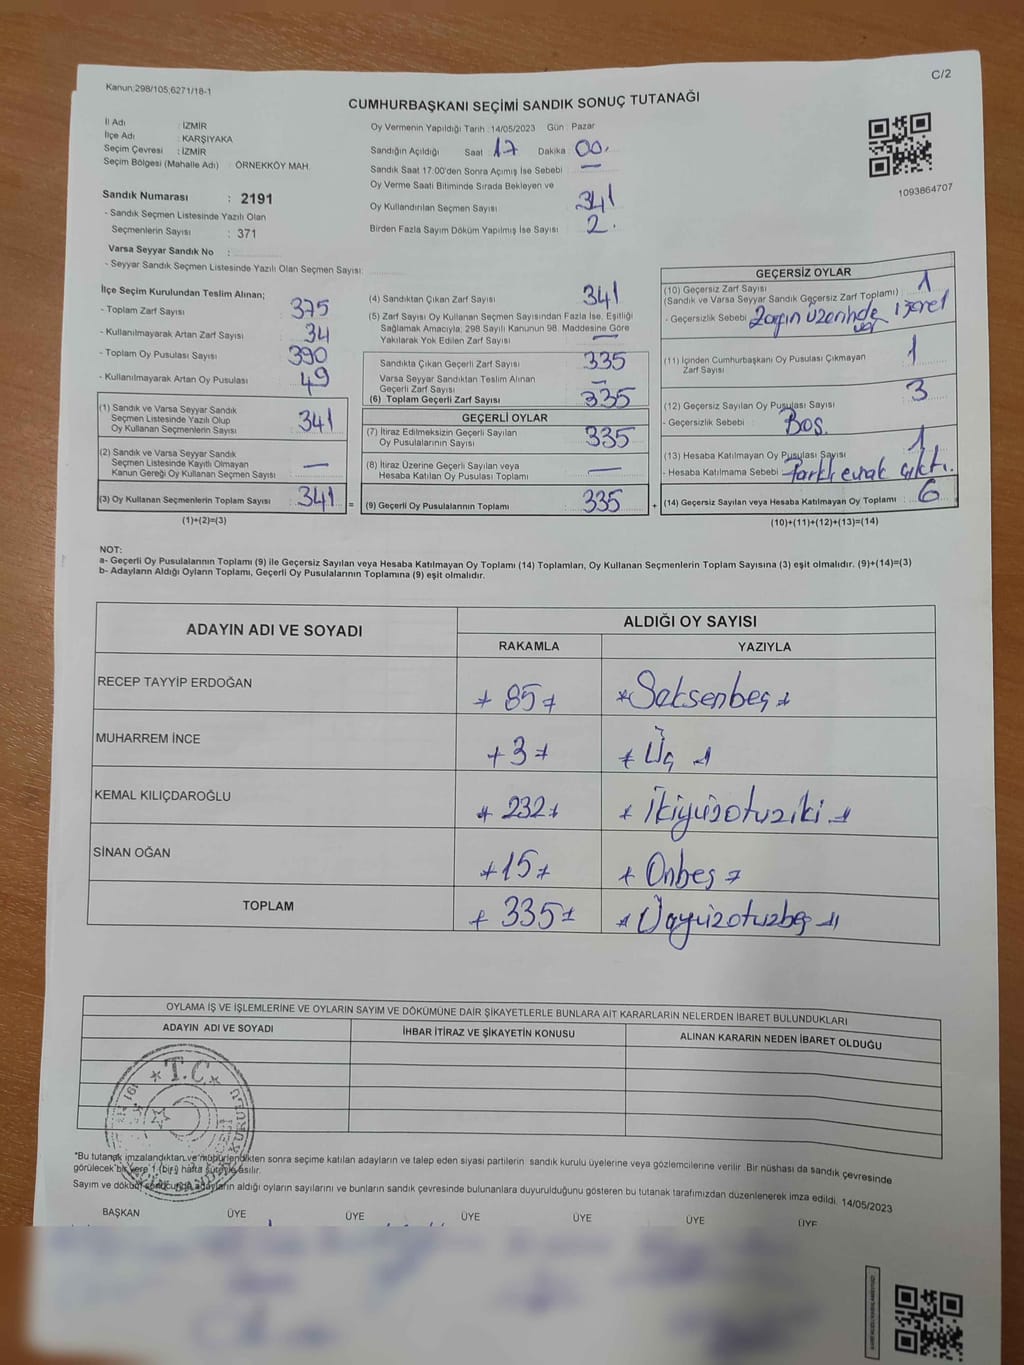 C/2
Kanun;298/105,6271/18-1
CUMHURBAŞKANI SEÇİMİ SANDIK SONUÇ TUTANAĞI
İl Adı : İZMİR
İlçe Adı : KARŞIYAKA
Seçim Çevresi : İZMİR
Seçim Bölgesi (Mahalle Adı) : ÖRNEKKÖY MAH.
Sandık Numarası : 2191
- Sandık Seçmen Listesinde Yazılı Olan
Seçmenlerin Sayısı : 371
Varsa Seyyar Sandık No :
- Seyyar Sandık Seçmen Listesinde Yazılı Olan Seçmen Sayısı:
Oy Vermenin Yapıldığı Tarih :14/05/2023 Gün : Pazar
Sandığın Açıldığı Saat : 17 Dakika : 00.
Sandık Saat 17.00'den Sonra Açımış İse Sebebi —
Oy Verme Saati Bitiminde Sırada Bekleyen ve
Oy Kullandırılan Seçmen Sayısı 341
Birden Fazla Sayım Döküm Yapılmış İse Sayısı 2.
1093864707
İlçe Seçim Kurulundan Teslim Alınan;
- Toplam Zarf Sayısı 375
- Kullanılmayarak Artan Zarf Sayısı 34
- Toplam Oy Pusulası Sayısı 390
- Kullanılmayarak Artan Oy Pusulası 49
(1) Sandık ve Varsa Seyyar Sandık
Seçmen Listesinde Yazılı Olup
Oy Kullanan Seçmenlerin Sayısı 341
(2) Sandık ve Varsa Seyyar Sandık
Seçmen Listesinde Kayıtlı Olmayan
Kanun Gereği Oy Kullanan Seçmen Sayısı —
(3) Oy Kullanan Seçmenlerin Toplam Sayısı 341 =
(1)+(2)=(3)
(4) Sandıktan Çıkan Zarf Sayısı 341
(5) Zarf Sayısı Oy Kullanan Seçmen Sayısından Fazla İse, Eşitliği
Sağlamak Amacıyla; 298 Sayılı Kanunun 98. Maddesine Göre
Yakılarak Yok Edilen Zarf Sayısı —
Sandıkta Çıkan Geçerli Zarf Sayısı 335
Varsa Seyyar Sandıktan Teslim Alınan
Geçerli Zarf Sayısı —
(6) Toplam Geçerli Zarf Sayısı 335
GEÇERLİ OYLAR
(7) İtiraz Edilmeksizin Geçerli Sayılan
Oy Pusulalarının Sayısı 335
(8) İtiraz Üzerine Geçerli Sayılan veya
Hesaba Katılan Oy Pusulası Toplamı —
(9) Geçerli Oy Pusulalarının Toplamı 335 +
GEÇERSİZ OYLAR
(10) Geçersiz Zarf Sayısı 1
(Sandık ve Varsa Seyyar Sandık Geçersiz Zarf Toplamı)
- Geçersizlik Sebebi Zarfın üzerinde işaret var
(11) İçinden Cumhurbaşkanı Oy Pusulası Çıkmayan
Zarf Sayısı 1
(12) Geçersiz Sayılan Oy Pusulası Sayısı 3
- Geçersizlik Sebebi Boş.
(13) Hesaba Katılmayan Oy Pusulası Sayısı 1
- Hesaba Katılmama Sebebi Farklı evrak çıktı.
(14) Geçersiz Sayılan veya Hesaba Katılmayan Oy Toplamı 6
(10)+(11)+(12)+(13)=(14)
NOT:
a- Geçerli Oy Pusulalarının Toplamı (9) ile Geçersiz Sayılan veya Hesaba Katılmayan Oy Toplamı (14) Toplamları, Oy Kullanan Seçmenlerin Toplam Sayısına (3) eşit olmalıdır. (9)+(14)=(3)
b- Adayların Aldığı Oyların Toplamı, Geçerli Oy Pusulalarının Toplamına (9) eşit olmalıdır.
ADAYIN ADI VE SOYADI
ALDIĞI OY SAYISI
RAKAMLA YAZIYLA
RECEP TAYYİP ERDOĞAN 85 Seksenbeş
MUHARREM İNCE 3 Üç
KEMAL KILIÇDAROĞLU 232 İkiyüzotuziki
SİNAN OĞAN 15 Onbeş
TOPLAM 335 Üçyüzotuzbeş
OYLAMA İŞ VE İŞLEMLERİNE VE OYLARIN SAYIM VE DÖKÜMÜNE DAİR ŞİKAYETLERLE BUNLARA AİT KARARLARIN NELERDEN İBARET BULUNDUKLARI
ADAYIN ADI VE SOYADI İHBAR İTİRAZ VE ŞİKAYETİN KONUSU ALINAN KARARIN NEDEN İBARET OLDUĞU
T.C.
*Bu tutanak imzalandıktan ve mühürlendikten sonra seçime katılan adayların ve talep eden siyasi partilerin sandık kurulu üyelerine veya gözlemcilerine verilir. Bir nüshası da sandık çevresinde
görülecek bir yere 1 (bir) hafta süreyle asılır.
Sayım ve döküm sonucunda adayların aldığı oyların sayılarını ve bunların sandık çevresinde bulunanlara duyurulduğunu gösteren bu tutanak tarafımızdan düzenlenerek imza edildi. 14/05/2023
BAŞKAN ÜYE ÜYE ÜYE ÜYE ÜYE ÜYE